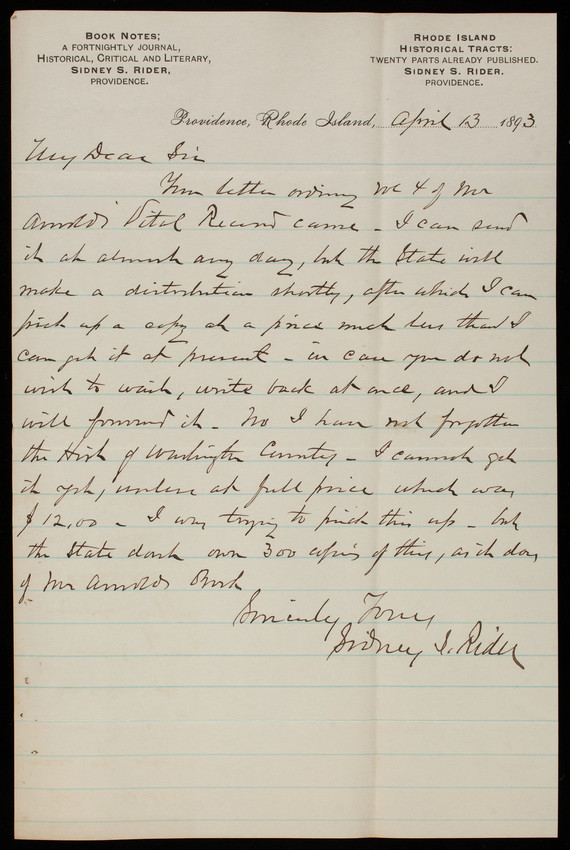 BOOK NOTES;
A FORTNIGHTLY JOURNAL,
HISTORICAL, CRITICAL AND LITERARY,
SIDNEY S. RIDER,
PROVIDENCE.
RHODE ISLAND
HISTORICAL TRACTS:
TWENTY PARTS ALREADY PUBLISHED.
SIDNEY S. RIDER.
PROVIDENCE.
Providence, Rhode Island, April 13 1893
My Dear Sir
Your letter ordering vol 4 of Mr
Arnold's Vital Record came - I can send
it at almost any day, but the State will
make a distribution shortly, after which I can
pick up a copy at a price much less than I
can get it at present - in case you do not
wish to wait, write back at once, and I
will forward it - No I have not forgotten
the Hist of Washington County - I cannot get
it yet, unless at full price which was
$12,00 - I was trying to pick this up - but
the State dont own 300 copies of this, as it does
of Mr Arnolds Book
Sincerely Yours
Sidney S. Rider